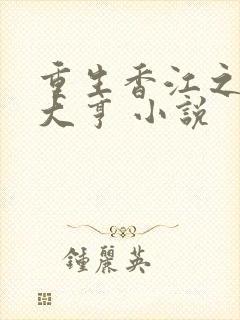 重生香江之
大亨 小說
鍾麗英